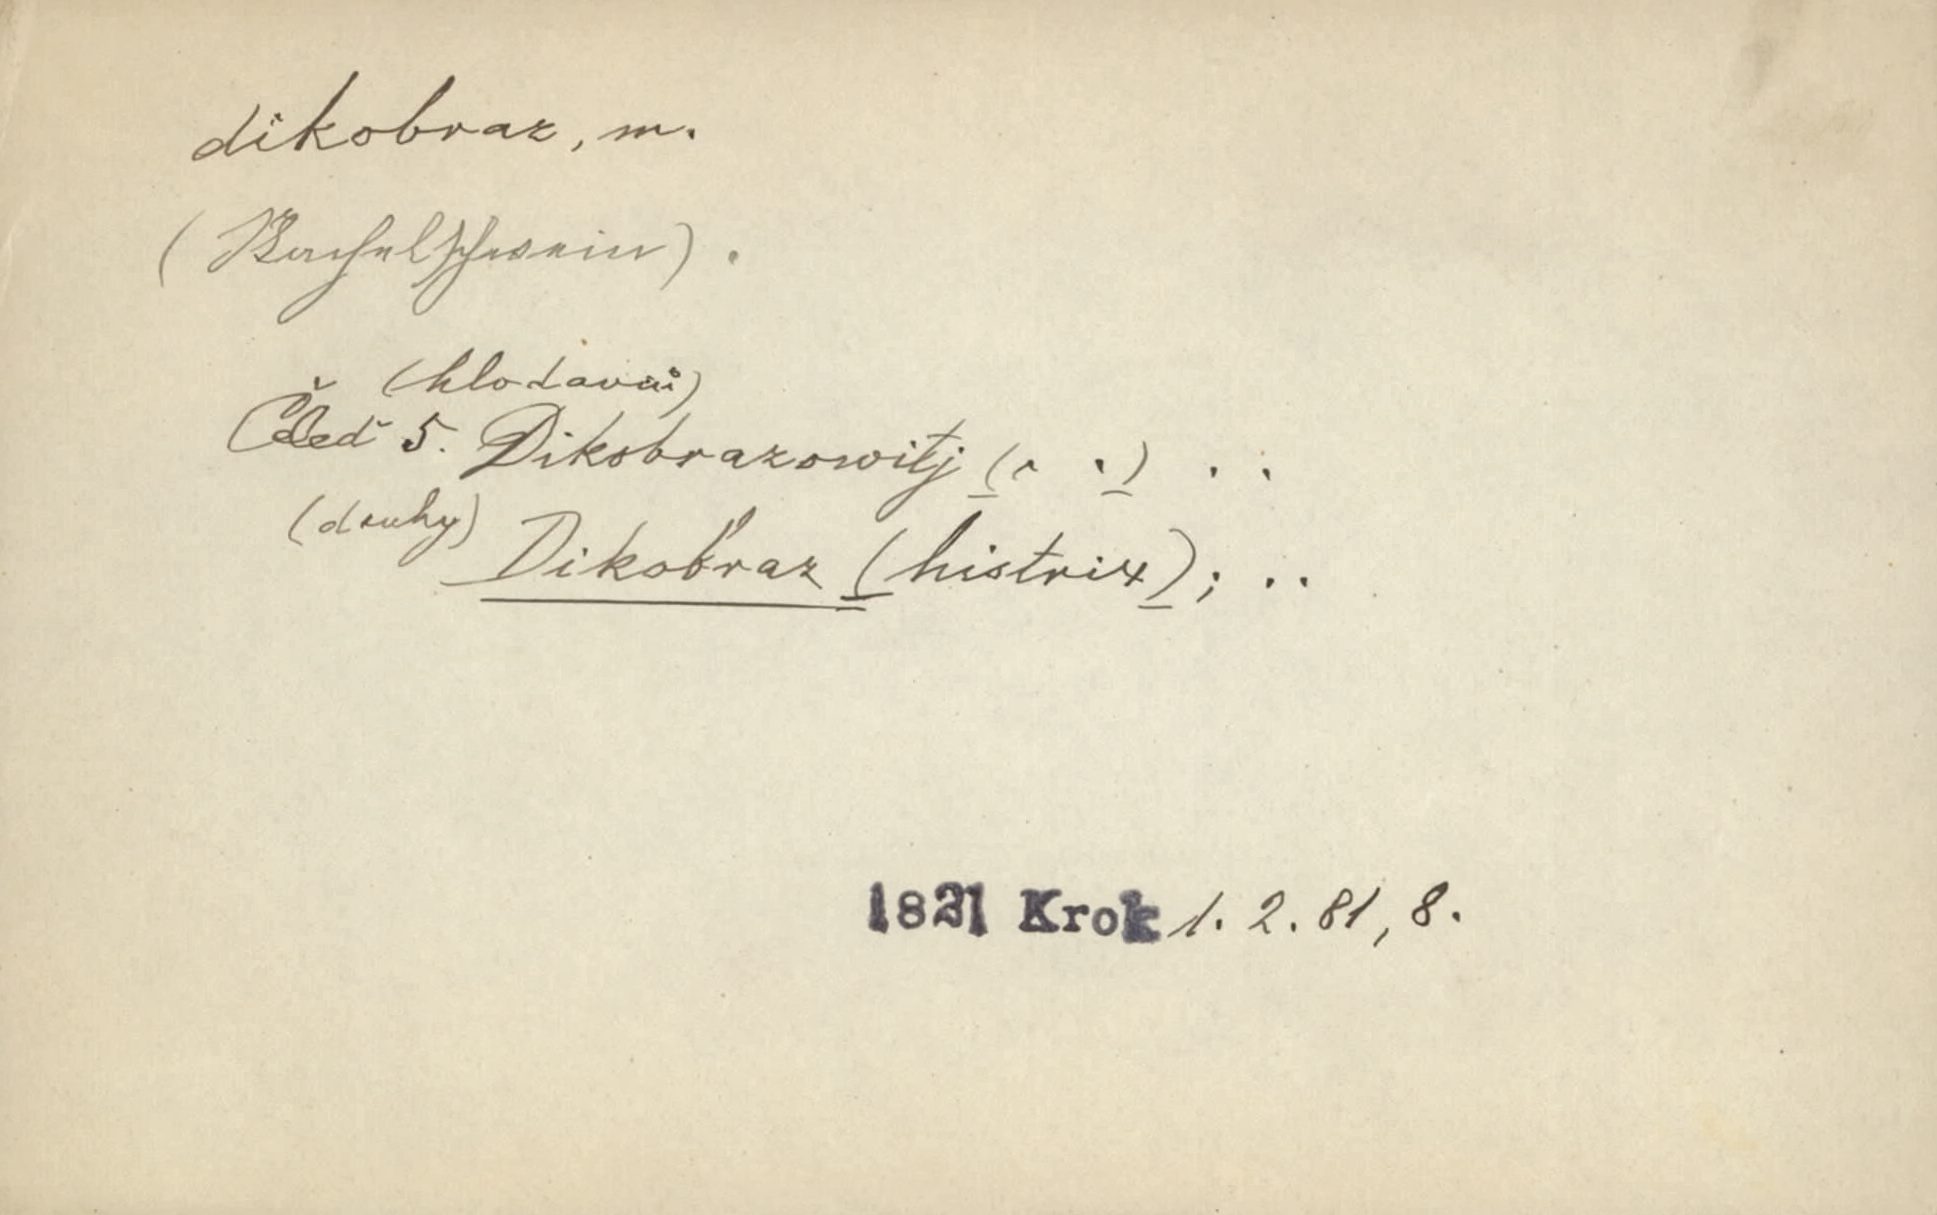 dikobraz, m.
(Stachelschwein).
(hlodavců)
Čeleď 5. Dikobrazowitj (. .) . .
(druhy)
Dikobraz (histrix); . .
1821 Krok 1. 2. 81, 8.